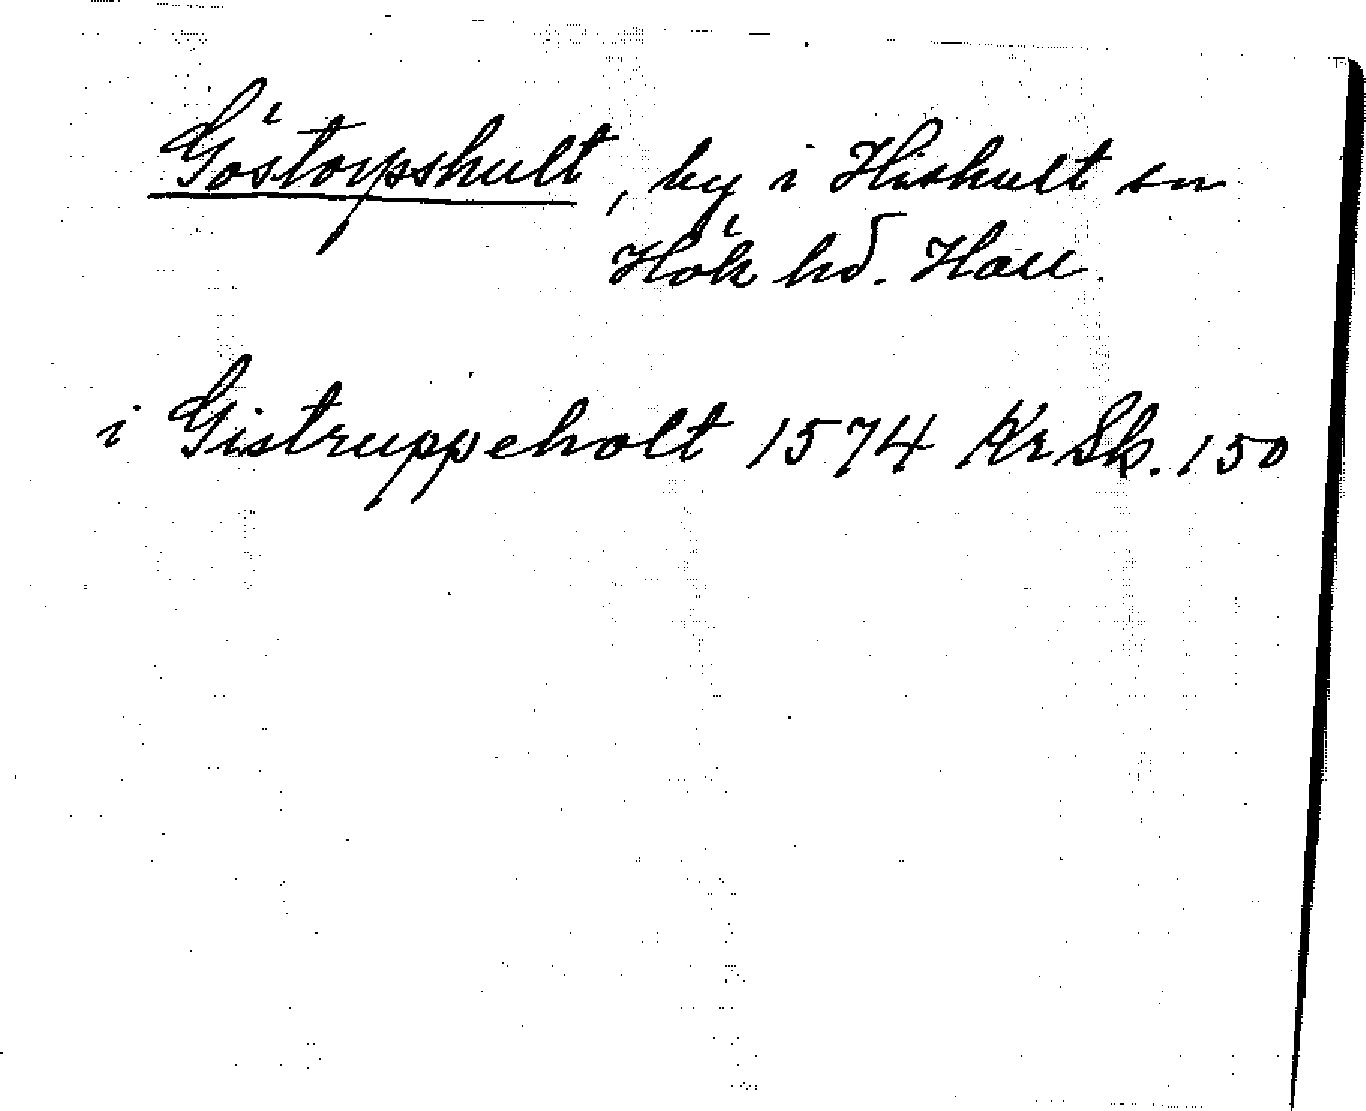 Göstorpshult, by i Hishult sn
Hök hd. Hall.
i Gistruppeholt 1574 KrSk. 150